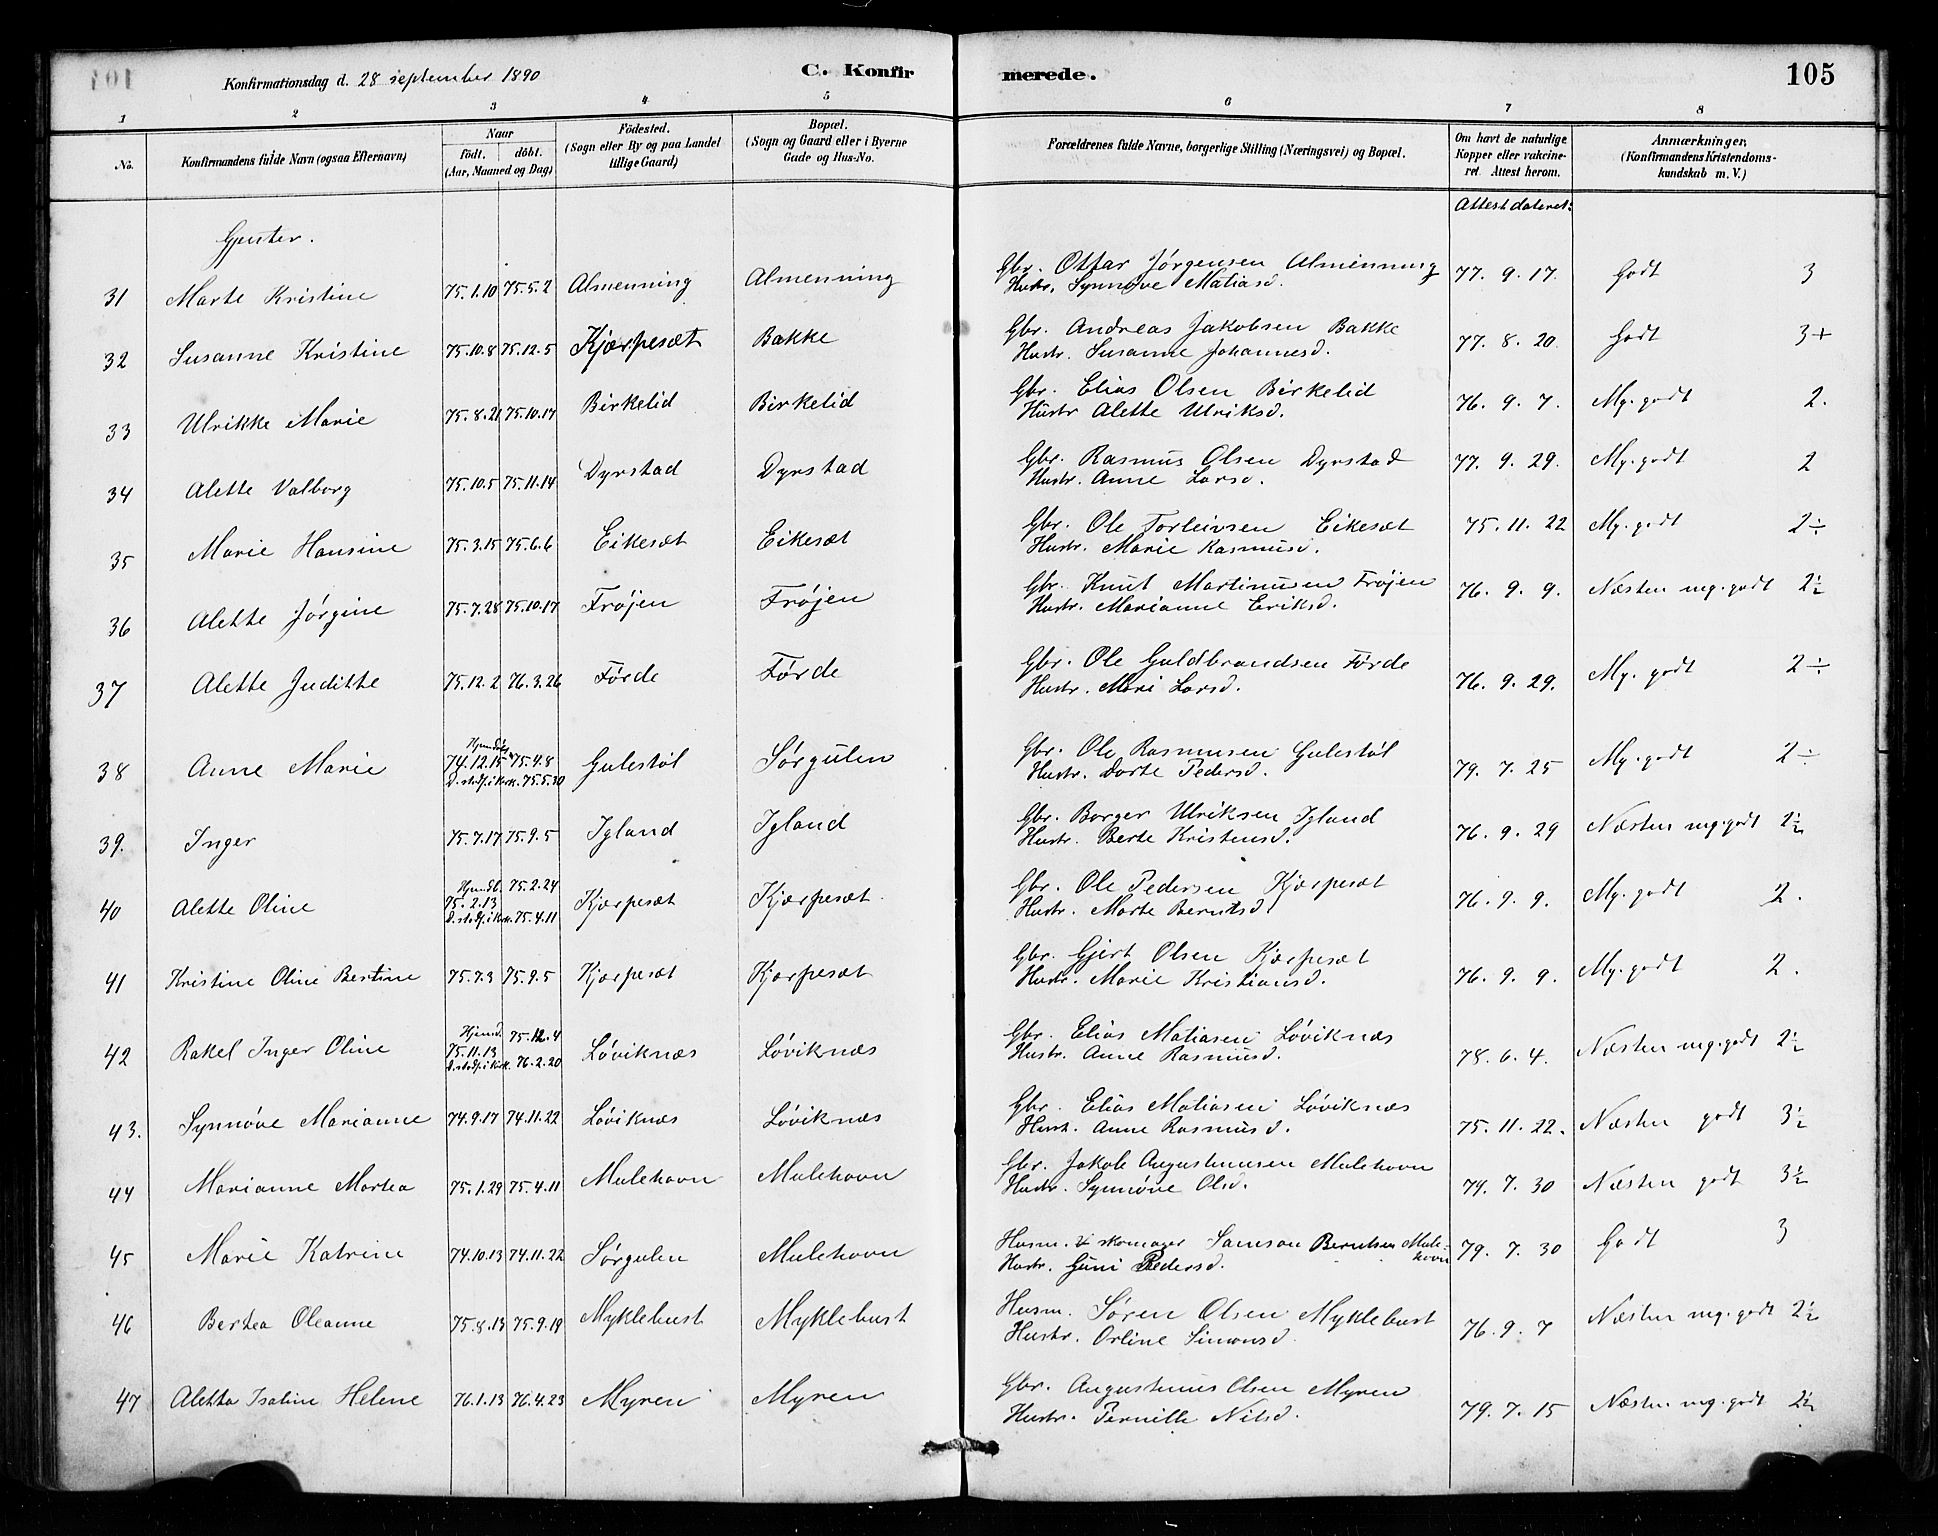 Konfirmationsdag d. 28 september 1890
C. Konfir
merede.
105
1 2 3 4 5 6 7 8
No.
Konfirmandens fulde Navn (ogsaa Efternavn)
Naar
födt. döbt.
(Aar, Maaned og Dag)
Födested.
(Sogn eller By og paa Landet
tillige Gaard)
Bopæl.
(Sogn og Gaard eller i Byerne
Gade og Hus-No.
Forældrenes fulde Navne, borgerlige Stilling (Næringsvei) og Bopæl.
Om havt de naturlige
Kopper eller vakcine-
ret. Attest herom.
Anmærkninger,
(Konfirmandens Kristendoms-
kundskab m. V.)
Attest dateret:
Gjenter.
31 Marte Kristine 75.1.10 75.5.2 Almenning Almenning Gbr. Otfar Jørgensen Almenning 77. 9. 17. Godt 3
Hustr. Synnøve Matiasd.
32 Susanne Kristine 75.10.8 75.12.5 Kjærpesæt Bakke Gbr. Andreas Jakobsen Bakke 77. 8. 20. Godt 3+
Hustr. Susanne Johannesd.
33 Ulrikke Marie 75.8.21 75.10.17 Birkelid Birkelid Gbr. Elias Olsen Birkelid 76. 9. 7. My. godt 2.
Hustr Alette Ulriksd.
34 Alette Valborg 75.10.5 75.11.14 Dyrstad Dyrstad Gbr. Rasmus Olsen Dyrstad 77. 9. 29. My. godt 2
Hustr. Anne Larsd.
35 Marie Hansine 75.3.15 75.6.6 Eikesæt Eikesæt Gbr. Ole Torleivsen Eikesæt 75. 11. 22 My. godt 2÷
Hustr. Marie Rasmusd.
36 Alette Jørgine 75.7.28 75.10.17 Frøjen Frøjen Gbr. Knut Martinusen Frøjen 76. 9. 9. Næsten mg. godt 2½
Hustr. Marianne Eriksd.
37 Alette Juditte 75.12.2 76.3.26 Førde Førde Gbr. Ole Guldbrandsen Førde 76. 9. 29. My. godt 2÷
Hustr. Mari Larsd.
38 Anne Marie 74.12.15 75.4.8 Gulestøl Sørgulen Gbr. Ole Rasmusen Gulestøl 79. 7. 25 My. godt 2÷
D. stadf. i Kirk. 75.5.30 Hustr. Dorte Pedersd.
39. Inger 75.7.17 75.9.5 Igland Igland Gbr. Borger Ulriksen Igland 76. 9. 29 Næsten mg. godt 2½
Hustr. Berte Kristensd.
40 Alette Oline Hjemdb. 75.2.24
75.2.13 Kjærpesæt Kjærpesæt Gbr. Ole Pedersen Kjærpesæt 76. 9. 9. My. godt 2.
D. stadf. i Kirk. 75.4.11 Hustr. Marte Berntsd.
41 Kristine Oline Bertine 75.7.3 75.9.5 Kjærpesæt Kjærpesæt Gbr. Gjert Olsen Kjærpesæt 76. 9. 9. My. godt 2.
Hustr. Marie Kristiansd.
42 Rakel Inger Oline Hjemd. 75.12.4
75.11.13 Løviknæs Løviknæs Gbr. Elias Matiasen Løviknæs 78. 6. 4. Næsten mg. godt 2½
D. stadf. i Kirk. 76.2.20 Hustr. Anne Rasmusd.
43. Synnøve Marianne 74.9.17 74.11.22 Løviknæs Løviknæs Gbr. Elias Matiasen Løviknæs 75. 11. 22. Næsten godt 3½
Hustr. Anne Rasmusd.
44 Marianne Martea 75.1.29 75.4.11 Mulehavn Mulehavn Gbr. Jakob Augustinusen Mulehavn 79. 7. 30 Næsten godt 3½
Hustr. Synnøve Olsd.
45 Marie Katrine 74.10.13 74.11.22 Sørgulen Mulehavn Husm. & skomager Samson Berntsen Mule- 79. 7. 30 Godt 3
Hustr. Guni Pedersd. havn
46 Bertea Oleanne 75.8.13 75.9.19 Myklebust Myklebust Husm. Søren Olsen Myklebust 76. 9. 7 Næsten mg. godt 2½
Hustr. Orline Simonsd.
47 Aletta Isaline Helene 76.1.13 76.4.23 Myren Myren Gbr. Augustinus Olsen Myren 79. 7. 15 Næsten mg. godt 2½
Hustr. Pernille Nilsd.